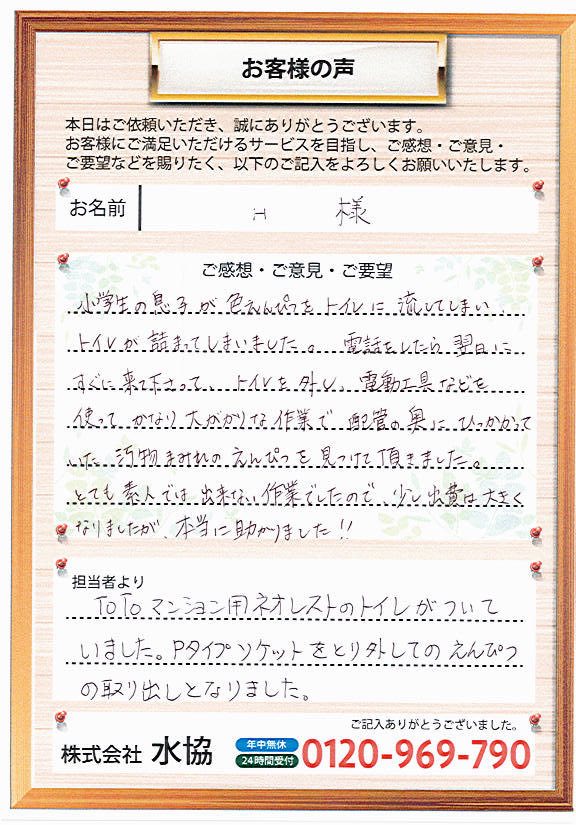 お客様の声
本日はご依頼いただき、誠にありがとうございます。
お客様にご満足いただけるサービスを目指し、ご感想・ご意見・
ご要望などを賜りたく、以下のご記入をよろしくお願いいたします。
お名前 H 様
ご感想・ご意見・ご要望
小学生の息子が色えんぴつをトイレに流してしまい、
トイレが詰まってしまいました。電話をしたら翌日に
すぐに来て下さって、トイレを外し、電動工具などを
使って かなり大がかりな作業で 配管の奥にひっかかって
いた 汚物まみれの えんぴつを 見つけて頂きました。
とても素人では出来ない作業でしたので、少し出費は大きく
なりましたが、本当に助かりました!!
担当者より
TOTOマンション用ネオレストのトイレがついて
いました。Pタイプソケットをとり外しての えんぴつ
の取り出しとなりました。
ご記入ありがとうございました。
株式会社 水協 年中無休 24時間受付 0120-969-790